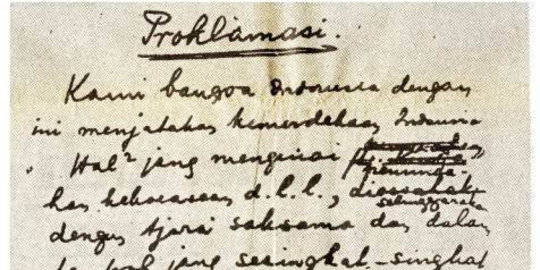 Proklamasi.
Kami bangsa Indonesia dengan
ini menjatakan kemerdekaan Indonesia
Hal² jang mengenai peminda-
han kekoeasaan d.l.l., diselenggarakan
dengan tjara saksama dan dalam
jang sesingkat-singkat